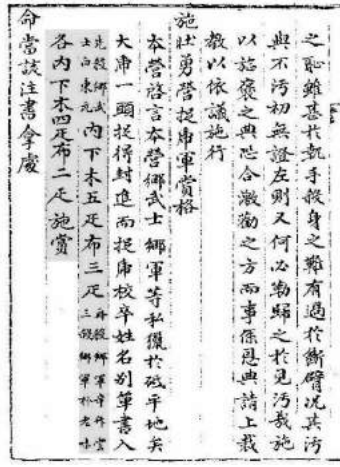 之恥雖甚於執手殺身之難有過於斷臂況其汚
與不汚初無證左則又何必勒歸之於見汚哉施
以詒褒之典恐合激勸之方而事係恩典請上裁
敎以依議施行
施壯勇營捉虎軍賞格
本營啓言本營鄕武士鄕軍等私獵於砥平地矣
大虎一頭捉得封進而捉虎校卒姓名別單書入
先殺鄕武
士白東元
內下木五疋布三疋
再殺鄕軍辛丹
三殺鄕軍朴老味
各內下木四疋布二疋施賞
命當該注書拿處